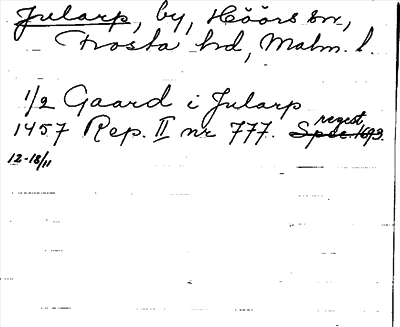 Jularp, by, Höörs sn.,
Frosta hd, Malm. l.
1/2 Gaard i Jularp
1457 Rep. II nr 777. regest
12-18/11